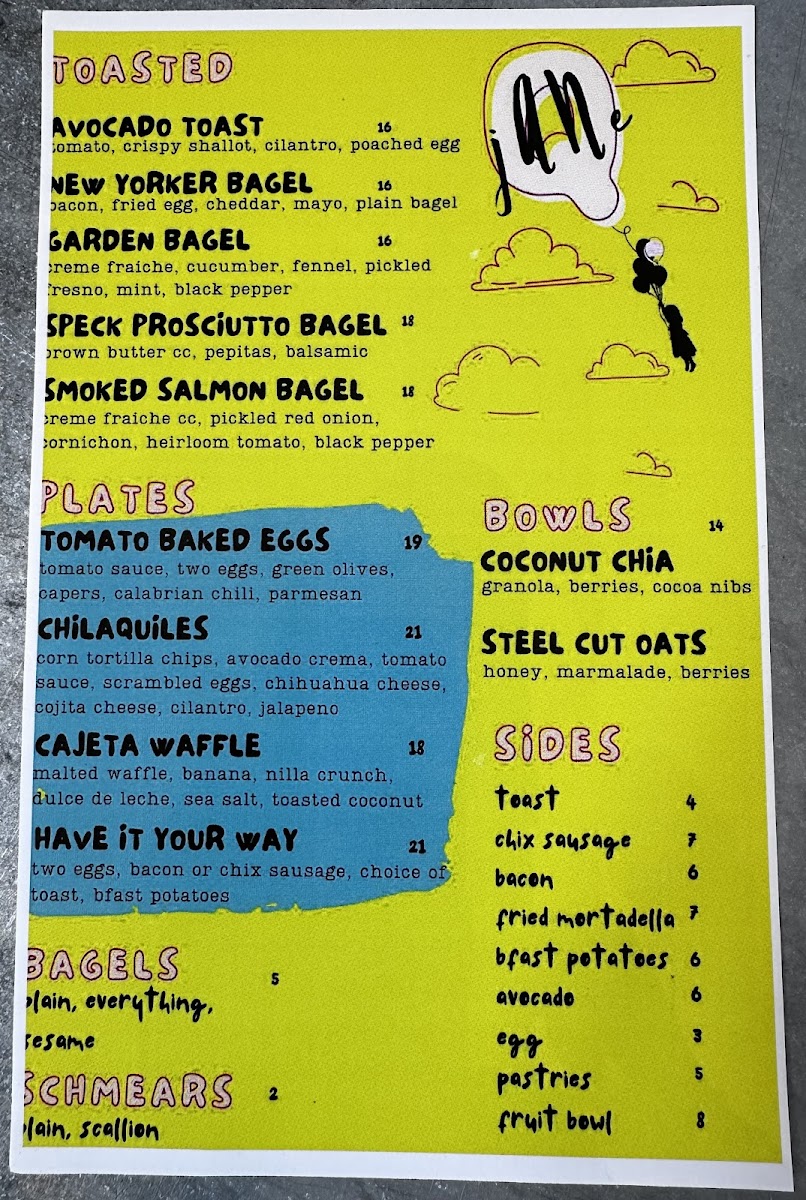 jane
TOASTED
AVOCADO TOAST 16
tomato, crispy shallot, cilantro, poached egg
NEW YORKER BAGEL 16
bacon, fried egg, cheddar, mayo, plain bagel
GARDEN BAGEL 16
creme fraiche, cucumber, fennel, pickled
fresno, mint, black pepper
SPECK PROSCiUTTO BAGEL 18
brown butter cc, pepitas, balsamic
SMOKED SALMON BAGEL 18
creme fraiche cc, pickled red onion,
cornichon, heirloom tomato, black pepper
PLATES
TOMATO BAKED EGGS 19
tomato sauce, two eggs, green olives,
capers, calabrian chili, parmesan
CHiLAQUiLES 21
corn tortilla chips, avocado crema, tomato
sauce, scrambled eggs, chihuahua cheese,
cojita cheese, cilantro, jalapeno
CAJETA WAFFLE 18
malted waffle, banana, nilla crunch,
dulce de leche, sea salt, toasted coconut
HAVE iT YOUR WAY 21
two eggs, bacon or chix sausage, choice of
toast, bfast potatoes
BAGELS 5
plain, everything,
sesame
SCHMEARS 2
plain, scallion
BOWLS 14
COCONUT CHiA
granola, berries, cocoa nibs
STEEL CUT OATS
honey, marmalade, berries
SiDES
toast 4
chix sausage 7
bacon 6
fried mortadella 7
bfast potatoes 6
avocado 6
egg 3
pastries 5
fruit bowl 8